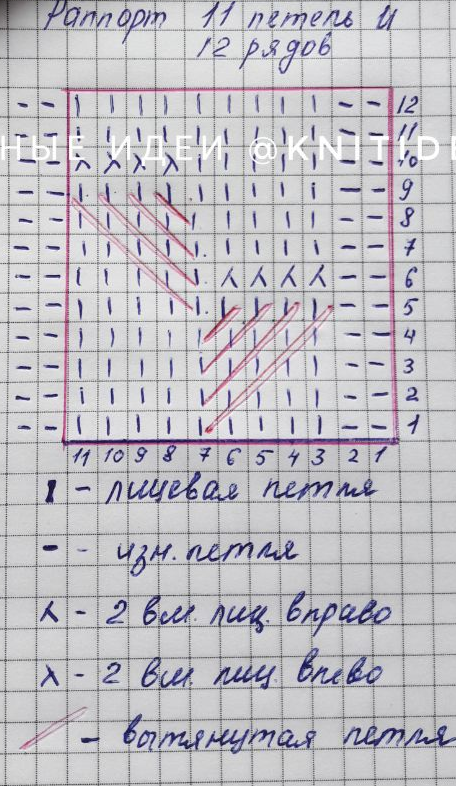 Раппорт 11 петель и
12 рядов
- - | | | | | | | | | - - 12
- - | | | | | | | | | - - 11
НЫЕ ИДЕИ @KNITIDE
- - λ λ λ λ | | | | | - - 10
- - | | | | | | | | | - - 9
- - | | | | | | | | | - - 8
- - | | | | | | | | | - - 7
- - | | | | | ⅄ ⅄ ⅄ ⅄ - - 6
- - | | | | | | | | | - - 5
- - | | | | | | | | | - - 4
- - | | | | | | | | | - - 3
- - | | | | | | | | | - - 2
- - | | | | | | | | | - - 1
11 10 9 8 7 6 5 4 3 2 1
I - лицевая петля
- - изн. петля
⅄ - 2 вм. лиц. вправо
λ - 2 вм. лиц. влево
/ - вытянутая петля